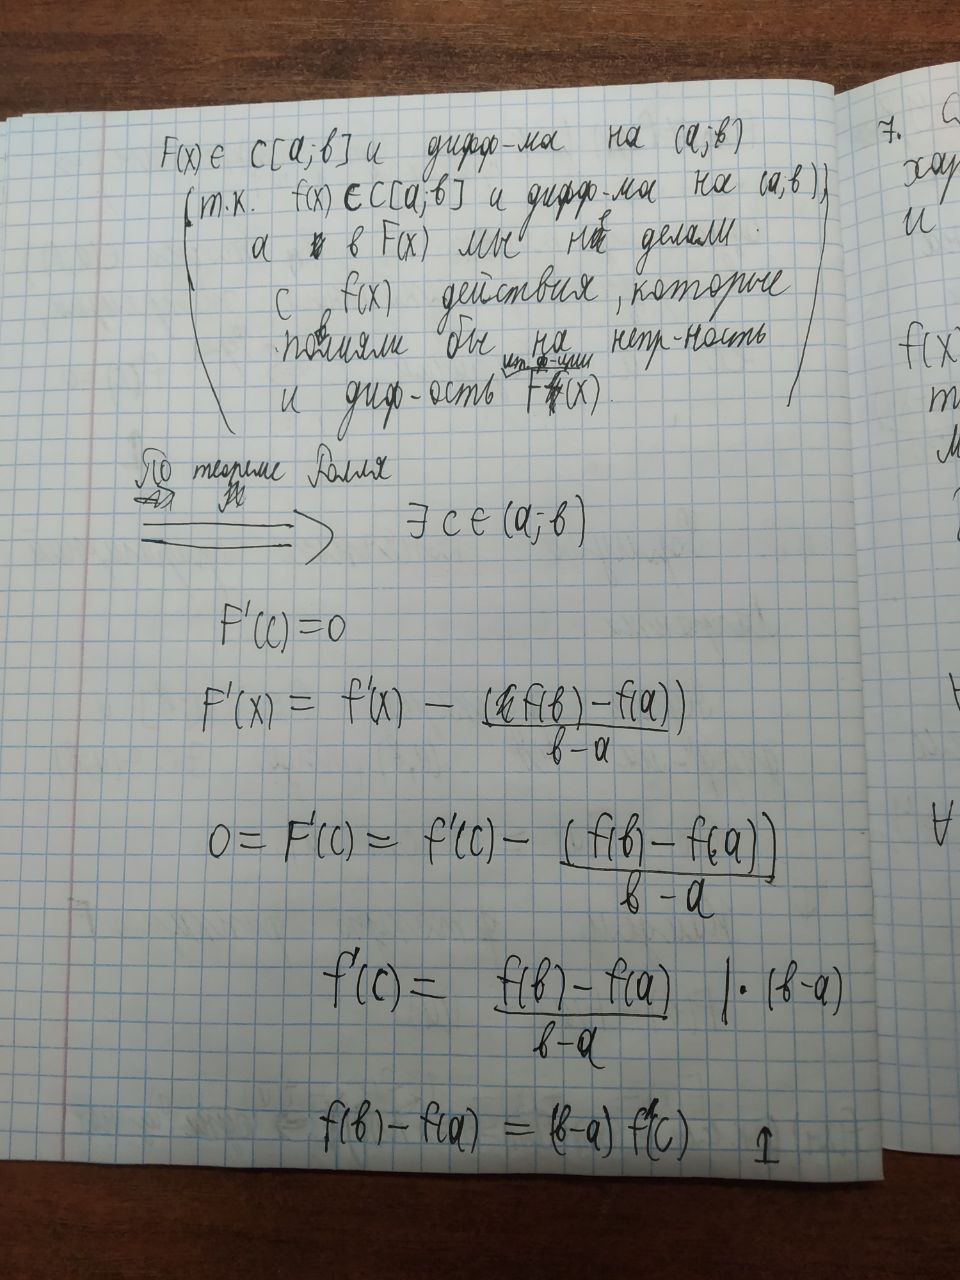 F(x) ∈ C[a;b] и дифф-ма на (a;b)
(т.к. f(x) ∈ C[a;b] и дифф-ма на (a;b))
а в F(x) мы не делали
с f(x) действия, которые
повлияли бы на непр-ность
и диф-ость F(x).
По теореме Ролля
⟹ ∃ c ∈ (a;b)
F'(c) = 0
F'(x) = f'(x) - (f(b) - f(a)) / b-a
0 = F'(c) = f'(c) - (f(b) - f(a)) / b-a
f'(c) = f(b) - f(a) / b-a | · (b-a)
f(b) - f(a) = (b-a) f'(c)
7.
хар
и
f(x
т
м